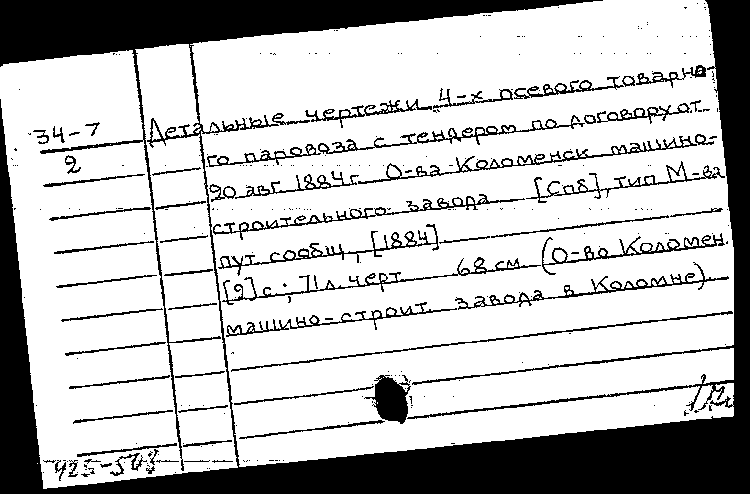 34-7
2
Детальные чертежи 4-х осевого товарно-
го паровоза с тендером по договору от
20 авг. 1884 г. О-ва Коломенск машино-
строительного завода [Спб], тип М-ва
пут. сообщ, [1884]
[2] с; 71 л. черт 68 см (О-во Коломен.
машино-строит. завода в Коломне).